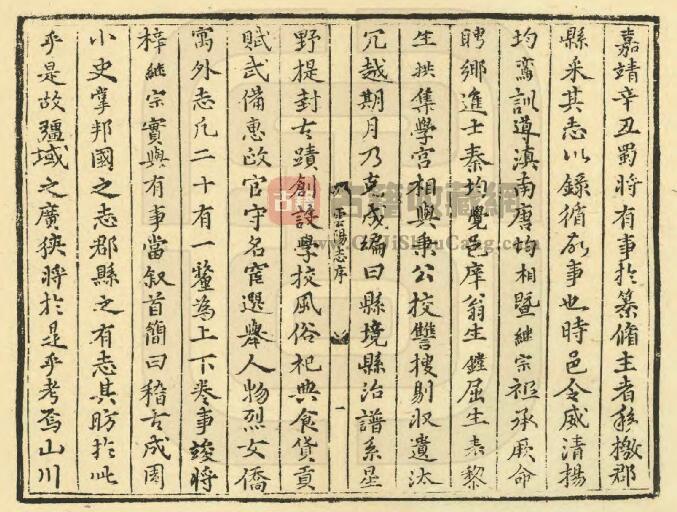 嘉靖辛丑蜀將有事於纂脩主者移檄郡
縣采其志以錄循故事也時邑令威清揚
均鸞訓導滇南唐均相暨継宗祗承厥命
聘鄉進士秦均覺邑庠翁生鏜屈生表黎
生拱集學宮相與秉公校讐搜剔収遺汰
冗越期月乃克成編曰縣境縣治譜系星
雲陽志序
一
野提封古蹟創設學校風俗祀典食貨貢
賦武備惠政官守名宦選舉人物烈女僑
寓外志凡二十有一釐為上下卷事竣將
梓継宗實與有事當叙首簡曰稽古成周
小史掌邦國之志郡縣之有志其昉於此
乎是故疆域之廣狹將於是乎考焉山川
古籍收藏網
GuJiShouCang.com